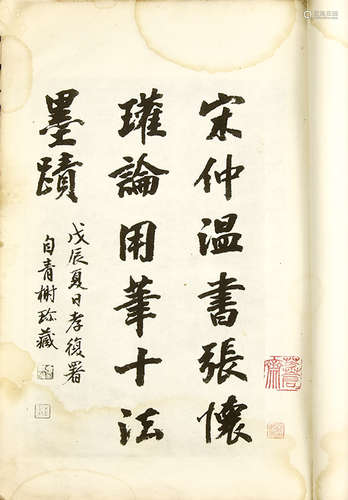 宋仲温書張懷
瓘論用筆十法
墨蹟
戊辰夏日孝復署
自青榭珍藏